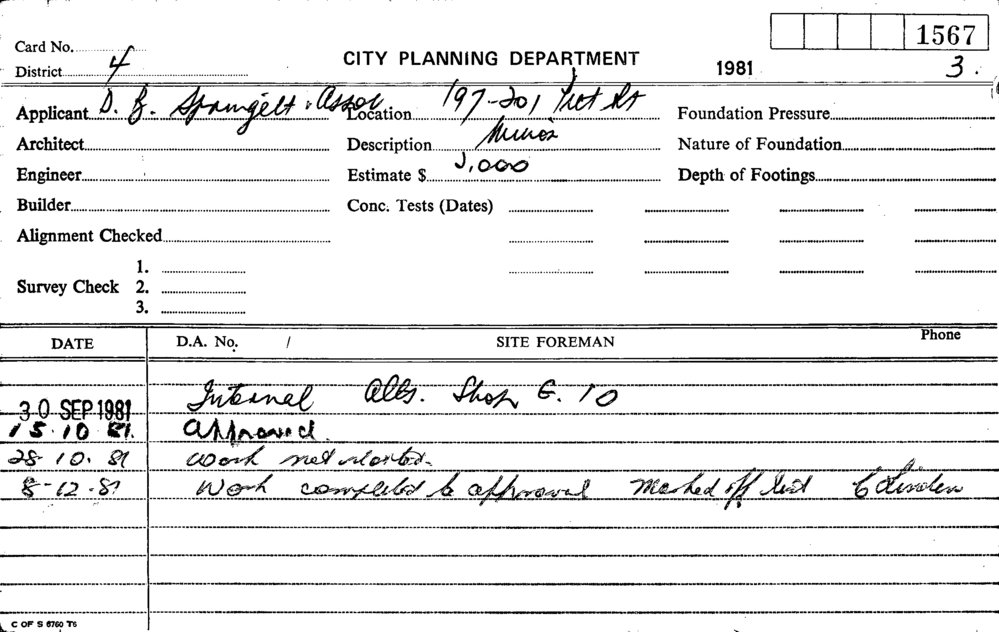 1567
Card No.
CITY PLANNING DEPARTMENT
1981
3.
District 4
Applicant D. Location 197-201 Pitt St Foundation Pressure
Architect Description Minor Nature of Foundation
Engineer Estimate $ ,000 Depth of Footings
Builder Conc. Tests (Dates)
Alignment Checked
1.
Survey Check 2.
3.
DATE D.A. No. / SITE FOREMAN Phone
30 SEP 1981 Internal Alts. Shop G. 10
15.10 81. Approved.
28.10.81 Work not started.
8-12-81 Work completed to approval Marked off list
C OF S 6760 T6